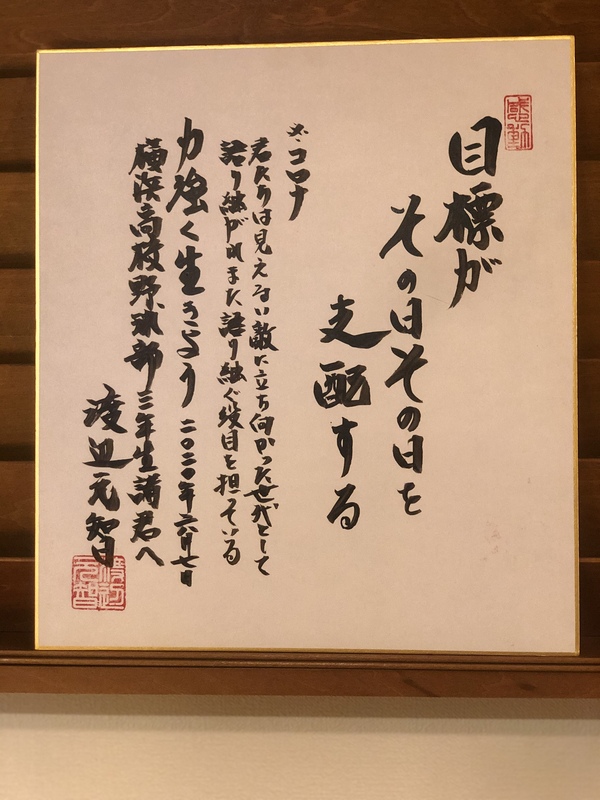 感動
目標が
その日その日を
支配する
ズ・コロナ
君たちは見えない敵に立ち向かった世代として
語り継がれまた語り継ぐ役目を担っている
力強く生きよう 二〇二〇年六月七日
横浜高校野球部三年生諸君へ
渡辺元智
渡辺元智